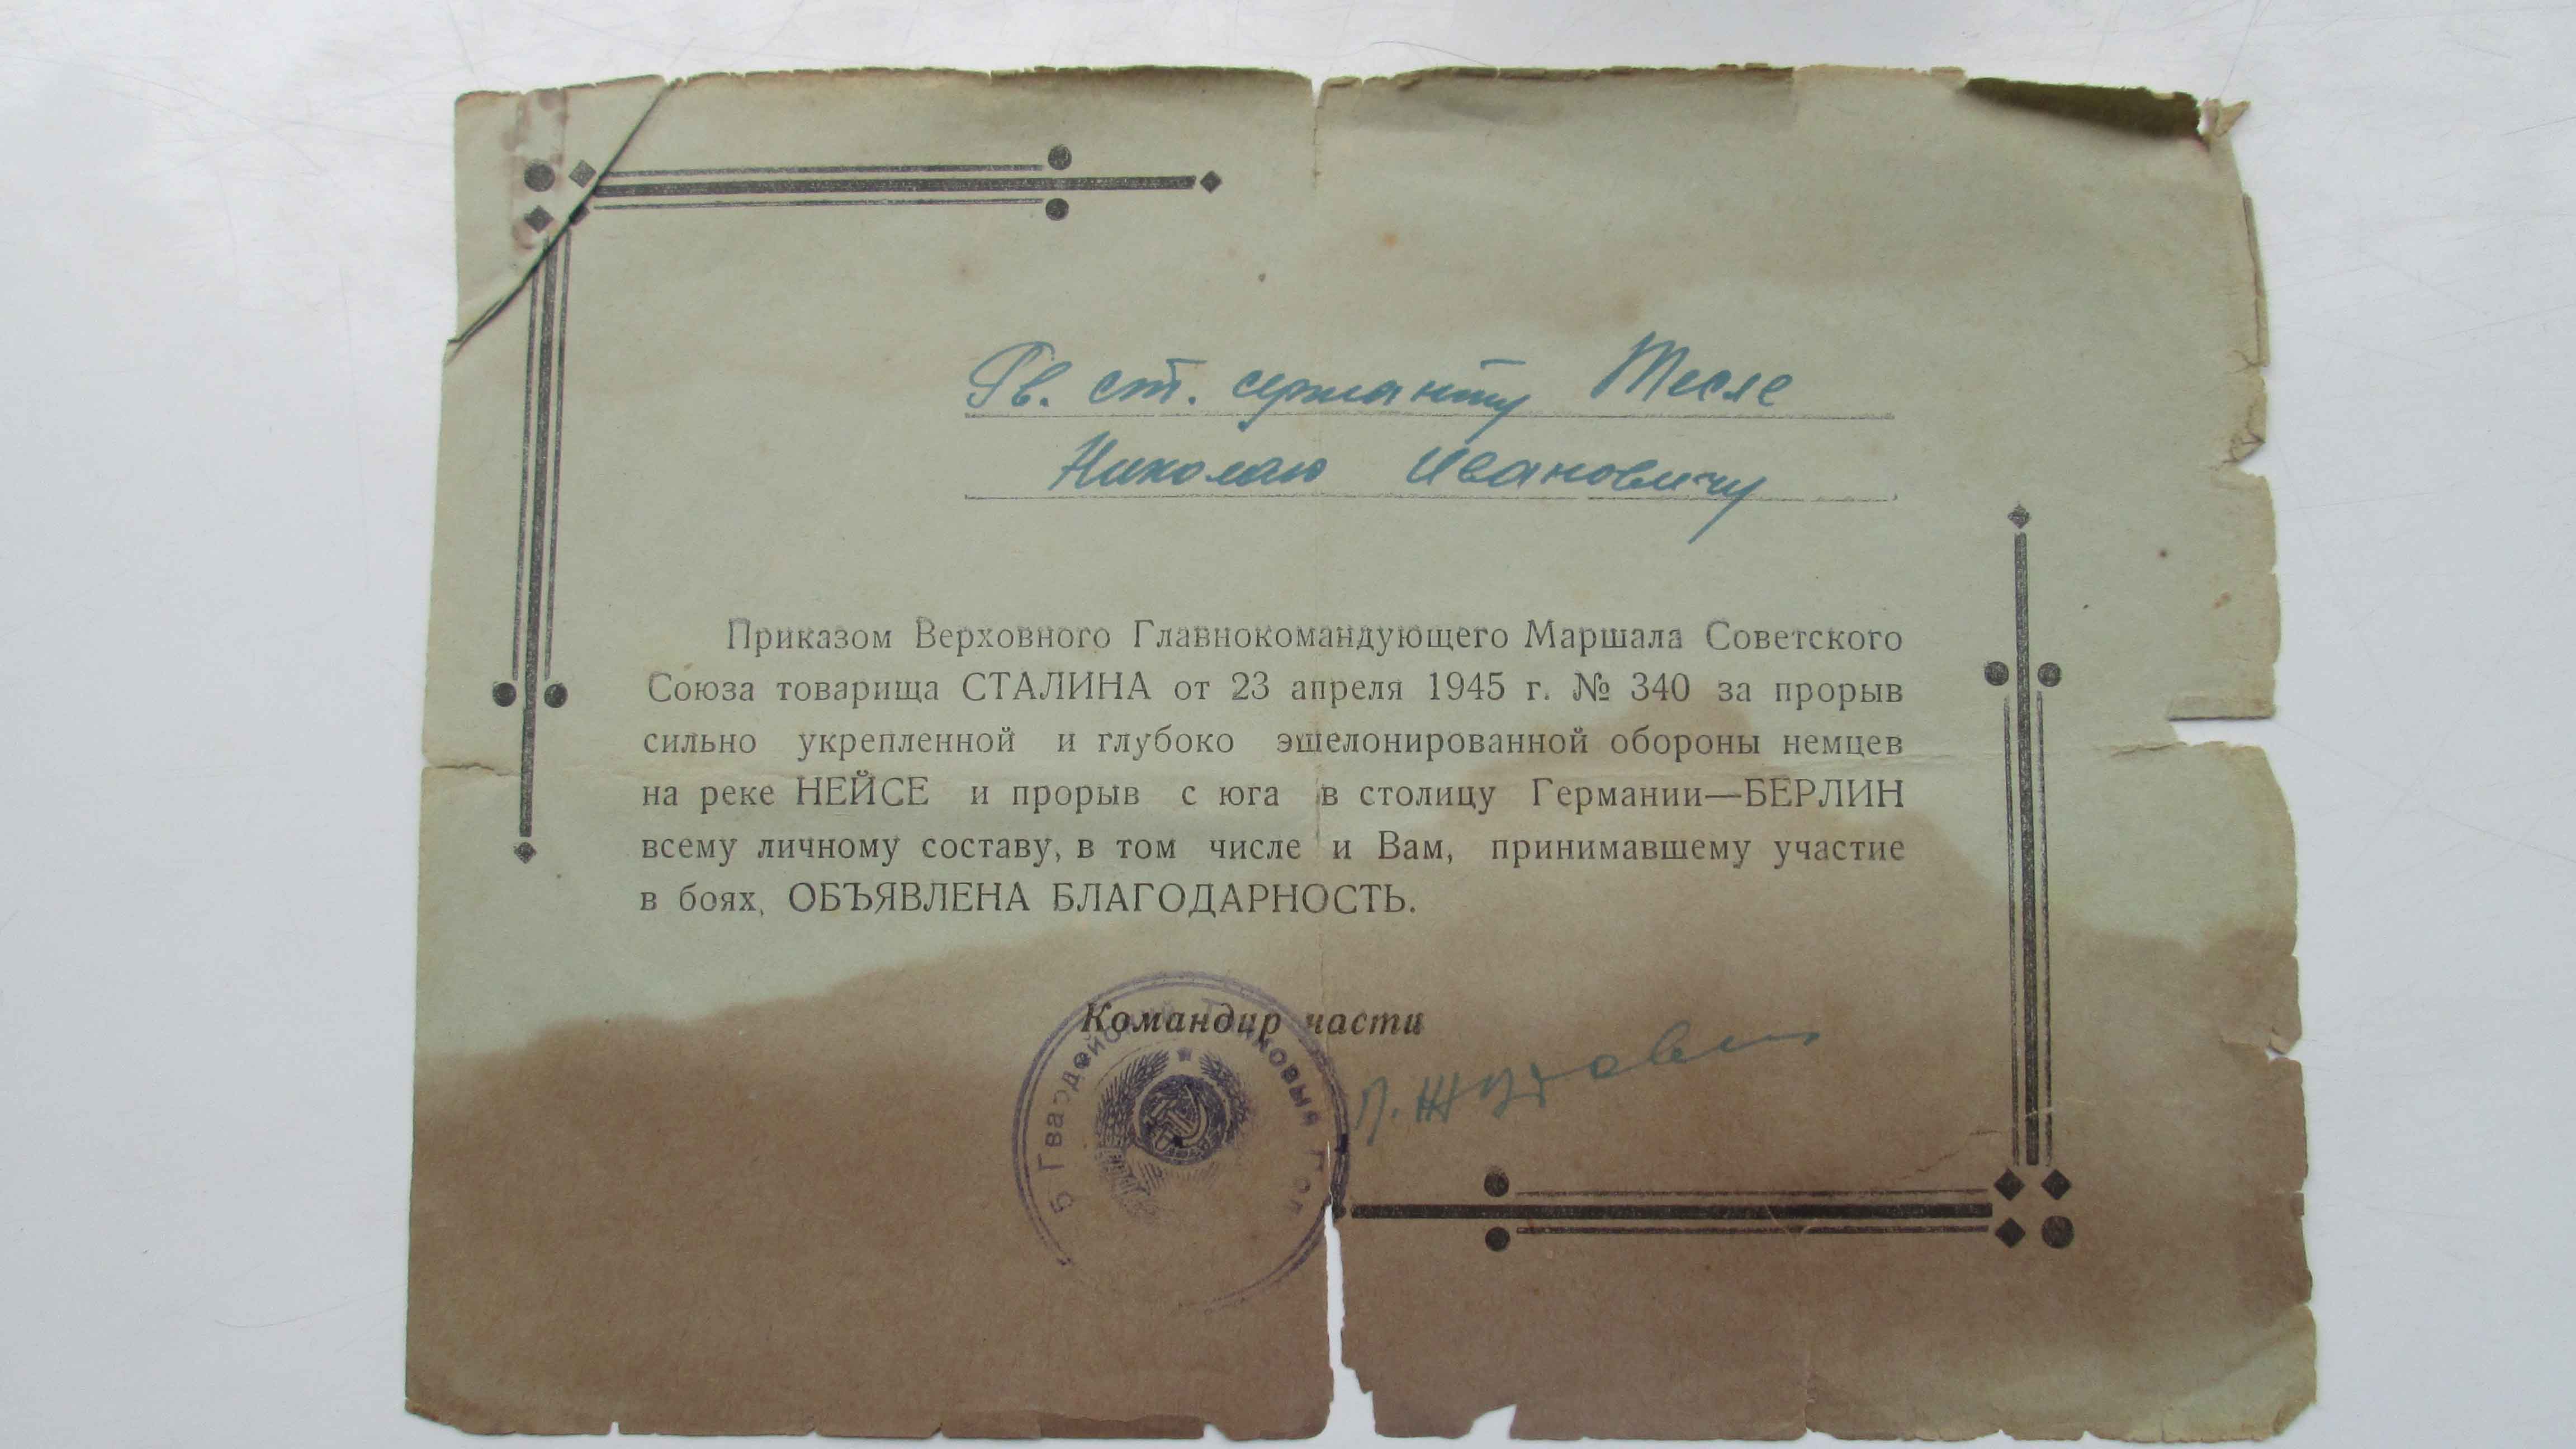 Гв. ст. сержанту Тесле
Николаю Ивановичу
Приказом Верховного Главнокомандующего Маршала Советского
Союза товарища СТАЛИНА от 23 апреля 1945 г. № 340 за прорыв
сильно укрепленной и глубоко эшелонированной обороны немцев
на реке НЕЙСЕ и прорыв с юга в столицу Германии—БЕРЛИН
всему личному составу, в том числе и Вам, принимавшему участие
в боях, ОБЪЯВЛЕНА БЛАГОДАРНОСТЬ.
Командир части